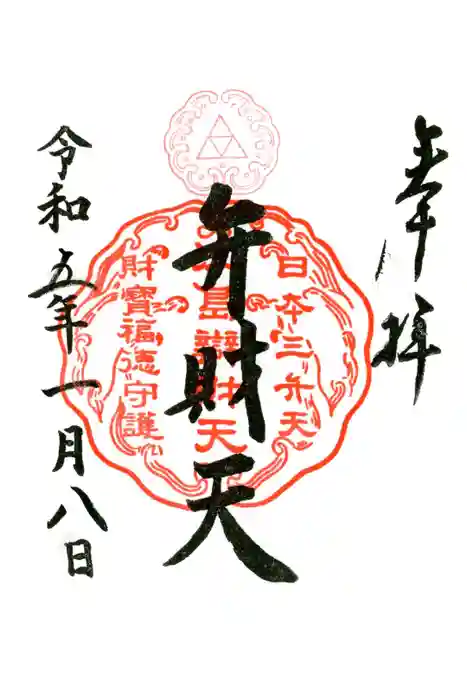 奉拝
日本三弁天
弁財天
江島辨財天
財寶福徳守護
令和五年一月八日